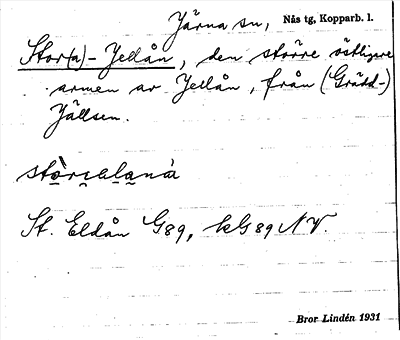 Järna sn, Nås tg, Kopparb. l.
Stor(a)-Jellån, den större östligare
armen av Jellån, från (Grädd-)
Jällsen.
St. Eldån G89, kG89NV.
Bror Lindén 1931